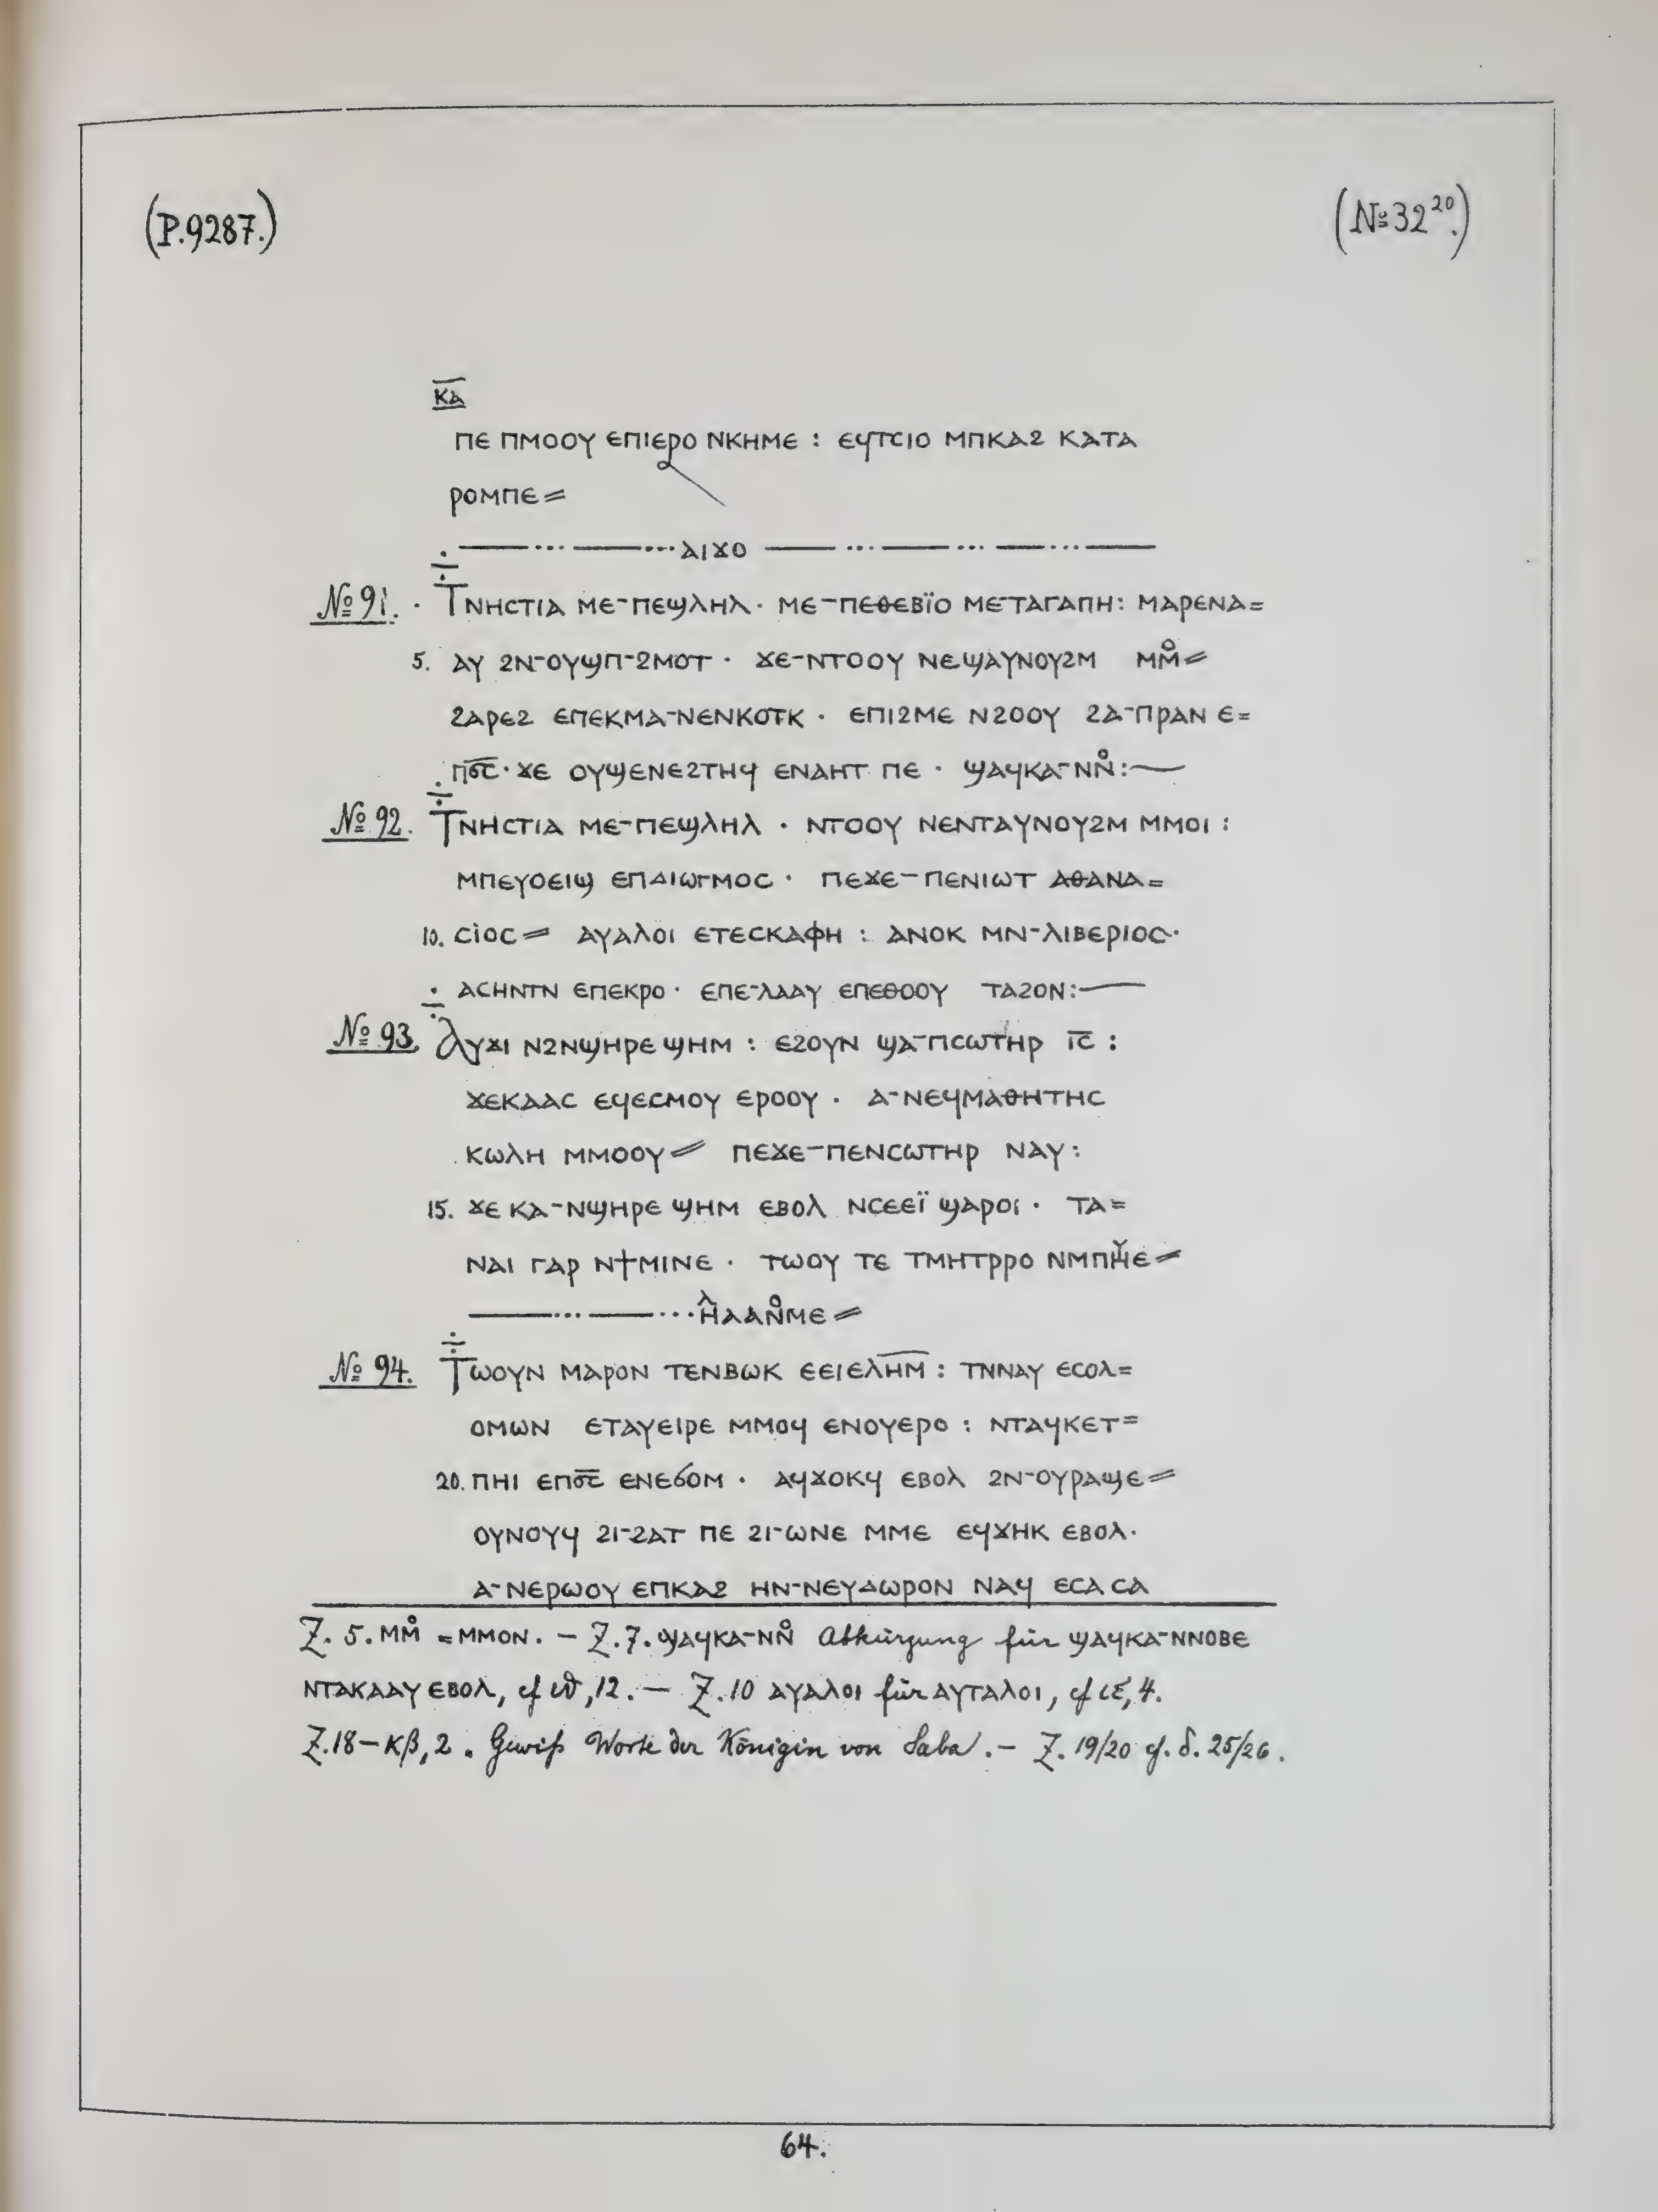 (P.9287.)
(№32²⁰.)
ⲕ̅ⲁ̅
ⲡⲉ ⲡⲙⲟⲟⲩ ⲉⲡⲓⲉⲣⲟ ⲛⲕⲏⲙⲉ : ⲉϥⲧⲥⲓⲟ ⲙⲡⲕⲁϩ ⲕⲁⲧⲁ
ⲣⲟⲙⲡⲉ⸗
—— ··· —— ··· ⲁⲓϫⲟ —— ··· —— ··· —— ··· ——
№ 91. · Ⲧⲛⲏⲥⲧⲓⲁ ⲙⲉ-ⲡⲉϣⲗⲏⲗ · ⲙⲉ-ⲡⲉⲑⲉⲃⲓ̈ⲟ ⲙⲉ-ⲧⲁⲅⲁⲡⲏ: ⲙⲁⲣⲉⲛⲁ=
5. ⲁⲩ ϩⲛ-ⲟⲩϣⲡ-ϩⲙⲟⲧ · ϫⲉ-ⲛⲧⲟⲟⲩ ⲛⲉϣⲁⲩⲛⲟⲩϩⲙ ⲙⲙ̊⸗
ϩⲁⲣⲉϩ ⲉⲡⲉⲕⲙⲁ-ⲛⲉⲛⲕⲟⲧⲕ · ⲉⲡⲓϩⲙⲉ ⲛϩⲟⲟⲩ ϩⲁ-ⲡⲣⲁⲛ ⲉ=
ⲡϭ̅ⲥ̅ · ϫⲉ ⲟⲩϣⲉⲛⲉϩⲧⲏϥ ⲉⲛⲁⲏⲧ ⲡⲉ · ϣⲁϥⲕⲁ-ⲛⲛ̊:—
№ 92. Ⲧⲛⲏⲥⲧⲓⲁ ⲙⲉ-ⲡⲉϣⲗⲏⲗ · ⲛⲧⲟⲟⲩ ⲛⲉⲛⲧⲁⲩⲛⲟⲩϩⲙ ⲙⲙⲟⲓ :
ⲙⲡⲉⲩⲟⲉⲓϣ ⲉⲡⲇⲓⲱⲅⲙⲟⲥ · ⲡⲉϫⲉ-ⲡⲉⲛⲓⲱⲧ ⲁⲑⲁⲛⲁ=
10. ⲥⲓⲟⲥ⸗ ⲁⲩⲁⲗⲟⲓ ⲉⲧⲉⲥⲕⲁⲫⲏ : ⲁⲛⲟⲕ ⲙⲛ-ⲗⲓⲃⲉⲣⲓⲟⲥ·
ⲁⲥⲏⲛⲧⲛ ⲉⲡⲉⲕⲣⲟ · ⲉⲡⲉ-ⲗⲁⲁⲩ ⲉⲡⲉⲑⲟⲟⲩ ⲧⲁϩⲟⲛ:—
№ 93. Ⲁⲩϫⲓ ⲛϩⲛϣⲏⲣⲉ ϣⲏⲙ : ⲉϩⲟⲩⲛ ϣⲁ-ⲡⲥⲱⲧⲏⲣ ⲓ̅ⲥ̅ :
ϫⲉⲕⲁⲁⲥ ⲉϥⲉⲥⲙⲟⲩ ⲉⲣⲟⲟⲩ · ⲁ-ⲛⲉϥⲙⲁⲑⲏⲧⲏⲥ
ⲕⲱⲗⲏ ⲙⲙⲟⲟⲩ⸗ ⲡⲉϫⲉ-ⲡⲉⲛⲥⲱⲧⲏⲣ ⲛⲁⲩ:
15. ϫⲉ ⲕⲁ-ⲛϣⲏⲣⲉ ϣⲏⲙ ⲉⲃⲟⲗ ⲛⲥⲉⲉⲓ̈ ϣⲁⲣⲟⲓ · ⲧⲁ=
ⲛⲁⲓ ⲅⲁⲣ ⲛϯⲙⲓⲛⲉ · ⲧⲱⲟⲩ ⲧⲉ ⲧⲙⲏⲧⲣⲣⲟ ⲛⲙⲡⲏⲩⲉ⸗
—— ··· —— ··· ⲏⲗⲁⲁⲛ̊ⲙⲉ⸗
№ 94. Ⲧⲱⲟⲩⲛ ⲙⲁⲣⲟⲛ ⲧⲉⲛⲃⲱⲕ ⲉⲉⲓⲉⲗ̅ⲏ̅ⲙ̅ : ⲧⲛⲛⲁⲩ ⲉⲥⲟⲗ=
ⲟⲙⲱⲛ ⲉⲧⲁⲩⲉⲓⲣⲉ ⲙⲙⲟϥ ⲉⲛⲟⲩⲉⲣⲟ : ⲛⲧⲁϥⲕⲉⲧ=
20. ⲡⲏⲓ ⲉⲡϭ̅ⲥ̅ ⲉⲛⲉϭⲟⲙ · ⲁϥϫⲟⲕϥ ⲉⲃⲟⲗ ϩⲛ-ⲟⲩⲣⲁϣⲉ⸗
ⲟⲩⲛⲟⲩϥ ϩⲓ-ϩⲁⲧ ⲡⲉ ϩⲓ-ⲱⲛⲉ ⲙⲙⲉ ⲉϥϫⲏⲕ ⲉⲃⲟⲗ·
ⲁ-ⲛⲉⲣⲱⲟⲩ ⲉⲡⲕⲁϩ ⲏⲛ-ⲛⲉⲩⲇⲱⲣⲟⲛ ⲛⲁϥ ⲉⲥⲁ ⲥⲁ
Z. 5. ⲙⲙ̊ = ⲙⲙⲟⲛ. – Z. 7. ϣⲁϥⲕⲁ-ⲛⲛ̊ Abkürzung für ϣⲁϥⲕⲁ-ⲛⲛⲟⲃⲉ
ⲛⲧⲁⲕⲁⲁⲩ ⲉⲃⲟⲗ, cf ιϑ, 12. – Z. 10 ⲁⲩⲁⲗⲟⲓ für ⲁⲩⲧⲁⲗⲟⲓ, cf ιε, 4.
Z. 18 – κβ, 2. Gewiß Worte der Königin von Saba. – Z. 19/20 cf. δ. 25/26.
64.